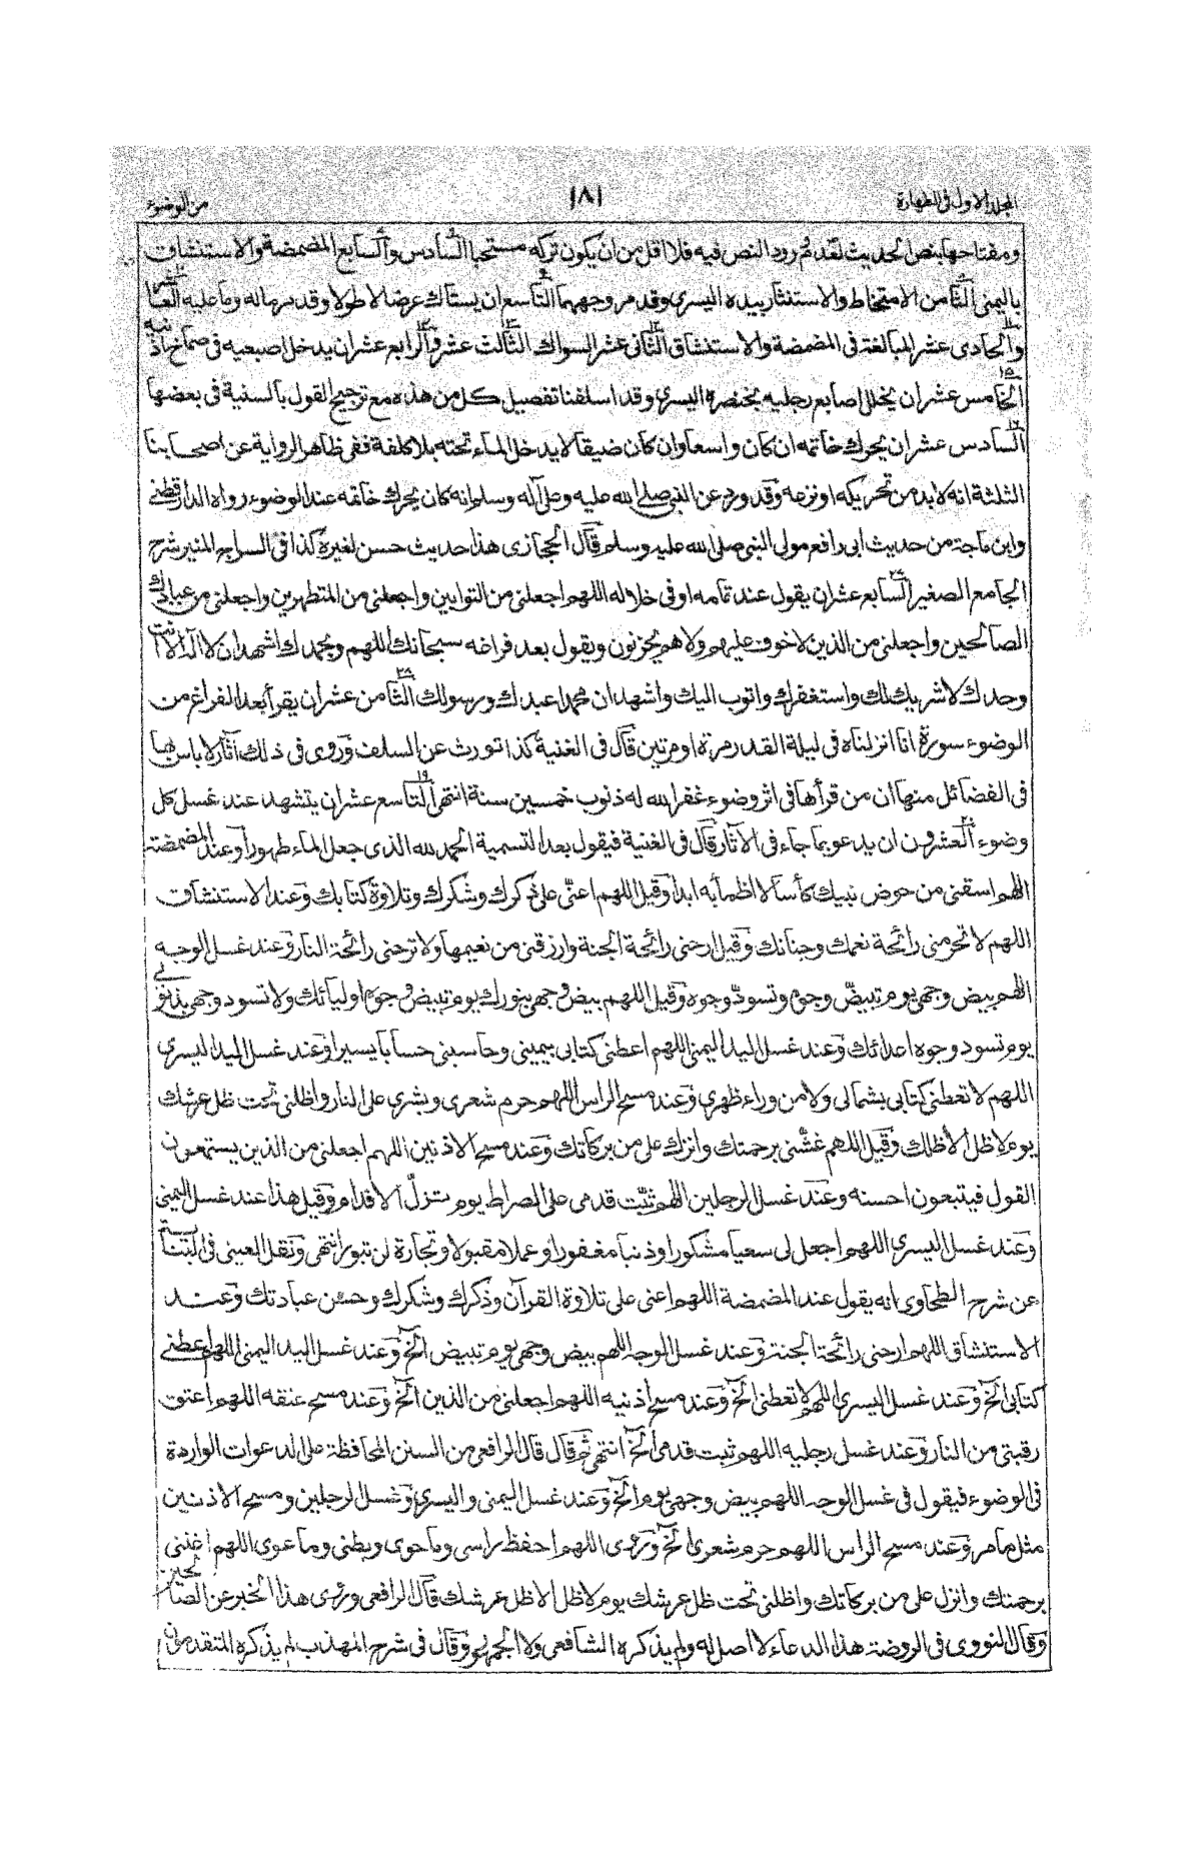 المجلد الاول فى الطهارة
١٨١
من الوضوء
ومفتاحها بنص الحديث لعدم ورود النص فيه فلا اقل من ان يكون تركه مستحبا السادس والسابع المضمضة والاستنشاق
باليمنى الثامن الامتخاط والاستنثار بيده اليسرى وقد مر وجههما التاسع ان يستاك عرضا لا طولا وقد مر ماله وما عليه العاشر
والحادى عشر المبالغة فى المضمضة والاستنشاق الثانى عشر السواك الثالث عشر والرابع عشر ان يدخل اصبعيه فى صماخ اذنيه
الخامس عشر ان يخلل اصابع رجليه بخنصره اليسرى وقد اسلفنا تفصيل كل من هذه مع ترجيح القول بالسنية فى بعضها
السادس عشر ان يحرك خاتمه ان كان واسعا وان كان ضيقا لا يدخل الماء تحته بلا كلفة ففى ظاهر الرواية عن اصحابنا
الثلثة انه لابد من تحريكه او نزعه وقد ورد عن النبى صلى الله عليه وعلى آله وسلم انه كان يحرك خاتمه عند الوضوء رواه الدارقطنى
وابن ماجة من حديث ابى رافع مولى النبى صلى الله عليه وسلم قال الحجازى هذا حديث حسن لغيره كذا فى السراج المنير شرح
الجامع الصغير السابع عشر ان يقول عند تمامه او فى خلاله اللهم اجعلنى من التوابين واجعلنى من المتطهرين واجعلنى من عبادك
الصالحين واجعلنى من الذين لا خوف عليهم ولا هم يحزنون ويقول بعد فراغه سبحانك اللهم وبحمدك اشهد ان لا اله الا انت
وحدك لا شريك لك واستغفرك واتوب اليك واشهد ان محمدا عبدك ورسولك الثامن عشر ان يقرأ بعد الفراغ من
الوضوء سورة انا انزلناه فى ليلة القدر مرة او مرتين قال فى الغنية كذا تورث عن السلف وروى فى ذلك آثار لا باس بها
فى الفضائل منها ان من قرأها فى اثر وضوء غفر الله له ذنوب خمسين سنة انتهى التاسع عشر ان يتشهد عند غسل كل
وضوء العشرون ان يدعو بما جاء فى الآثار قال فى الغنية فيقول بعد التسمية الحمد لله الذى جعل الماء طهورا وعند المضمضة
اللهم اسقنى من حوض نبيك كأسا لا اظمأ به ابدا وقيل اللهم اعنى على ذكرك وشكرك وتلاوة كتابك وعند الاستنشاق
اللهم لا تحرمنى رائحة نعمك وجنانك وقيل ارحنى رائحة الجنة وارزقنى من نعيمها ولا ترحنى رائحة النار وعند غسل الوجه
اللهم بيض وجهى يوم تبيض وجوه وتسود وجوه وقيل اللهم بيض وجهى بنورك يوم تبيض وجوه اوليائك ولا تسود وجهى بذنوبى
يوم تسود وجوه اعدائك وعند غسل اليد اليمنى اللهم اعطنى كتابى بيمينى وحاسبنى حسابا يسيرا وعند غسل اليد اليسرى
اللهم لا تعطنى كتابى بشمالى ولا من وراء ظهرى وعند مسح الراس اللهم حرم شعرى وبشرى على النار واظلنى تحت ظل عرشك
يوم لا ظل الا ظلك وقيل اللهم غشنى برحمتك وانزل على من بركاتك وعند مسح الاذنين اللهم اجعلنى من الذين يستمعون
القول فيتبعون احسنه وعند غسل الرجلين اللهم ثبت قدمى على الصراط يوم تزل الاقدام وقيل هذا عند غسل اليمنى
وعند غسل اليسرى اللهم اجعل لى سعيا مشكورا وذنبا مغفورا وعملا مقبولا وتجارة لن تبور انتهى ونقل العينى فى البناية
عن شرح الطحاوى انه يقول عند المضمضة اللهم اعنى على تلاوة القرآن وذكرك وشكرك وحسن عبادتك وعند
الاستنشاق اللهم ارحنى رائحة الجنة وعند غسل الوجه اللهم بيض وجهى يوم تبيض الخ وعند غسل اليد اليمنى اللهم اعطنى
كتابى الخ وعند غسل اليسرى اللهم لا تعطنى الخ وعند مسح أذنيه اللهم اجعلنى من الذين الخ وعند مسح عنقه اللهم اعتق
رقبتى من النار وعند غسل رجليه اللهم ثبت قدمى الخ انتهى ثم قال قال الرافعى من السنن المحافظة على الدعوات الواردة
فى الوضوء فيقول فى غسل الوجه اللهم بيض وجهى يوم الخ وعند غسل اليمنى واليسرى وغسل الرجلين ومسح الاذنين
مثل ما مر وعند مسح الراس اللهم حرم شعرى الخ وروى اللهم احفظ راسى وما حوى وبطنى وما عوى اللهم اغثنى
برحمتك وانزل على من بركاتك واظلنى تحت ظل عرشك يوم لا ظل الا ظل عرشك قال الرافعى وروى هذا الخبر عن الصالحين
وقال النووى فى الروضة هذا الدعاء لا اصل له ولم يذكره الشافعى ولا الجمهور وقال فى شرح المهذب لم يذكره المتقدمون